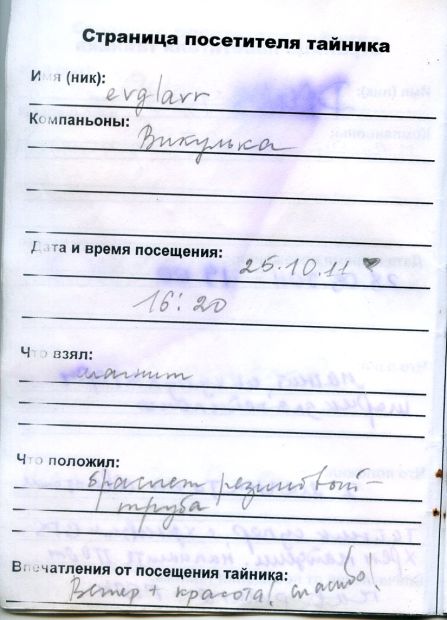 Страница посетителя тайника
Имя (ник):
evglavr
Компаньоны:
Викулька
Дата и время посещения:
25.10.11
16:20
Что взял:
магнит
Что положил:
браслет резиновый -
труба
Впечатления от посещения тайника:
Ветер + красота! Спасибо!